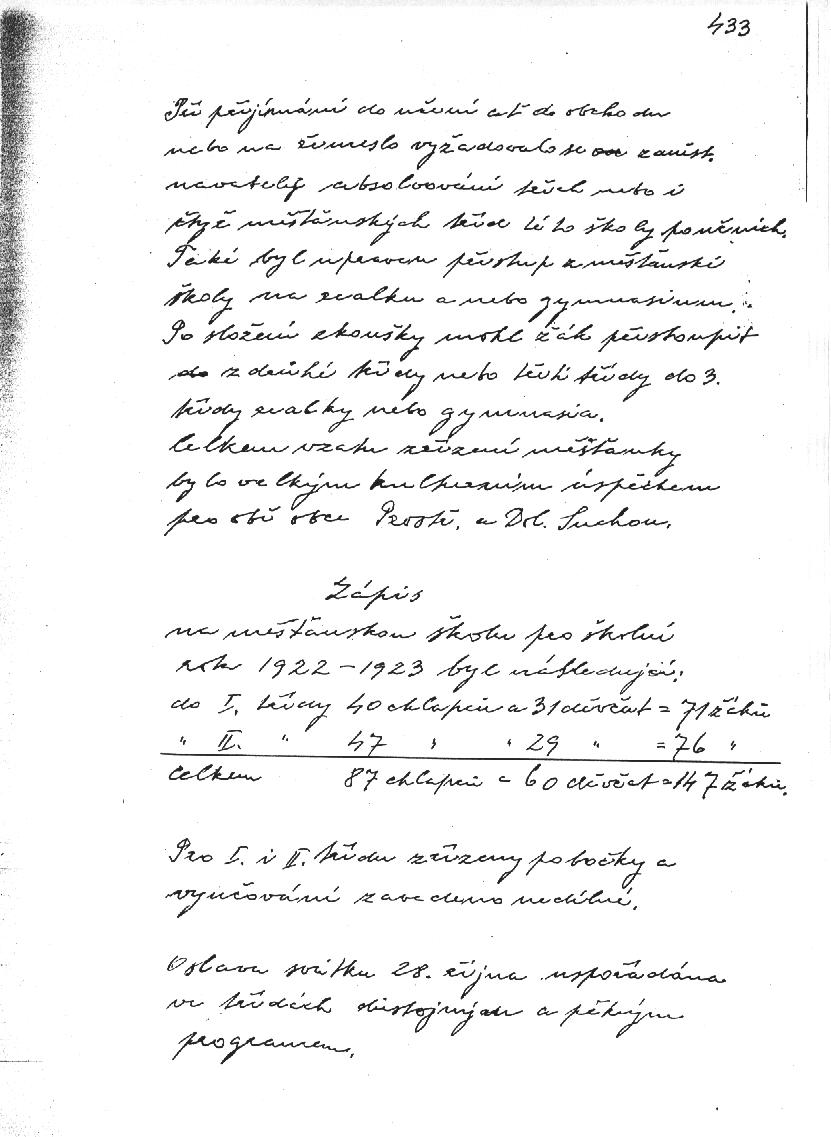 433
Při přijímání do učení ať do obchodu
nebo na řemeslo vyžadovalo se zaměst.
navately absolvování třech nebo i
čtyř měšťanských tříd této školy
Také byl upraven přestup z měšťanské
školy na realku a nebo gymnasium.
Po složení zkoušky mohl žák přestoupit
do z druhé třídy nebo třetí třídy do 3.
třídy realky nebo gymnasia.
Celkem vzato zřízení měšťanky
bylo velkým kulturním úspěchem
pro obě obce Prostř. a Dol. Suchou.
Zápis
na měšťanskou školu pro školní
rok 1922-1923 byl následující:
do I. třídy 40 chlapců a 31 děvčat = 71 žáků
" II. " 47 " " 29 " = 76 "
Celkem 87 chlapců a 60 děvčat = 147 žáků.
Pro I. i II. třídu zřízeny pobočky a
vyučování zavedeno nedílné.
Oslava svátku 28. října uspořádána
ve třídách důstojným a pěkným
programem.